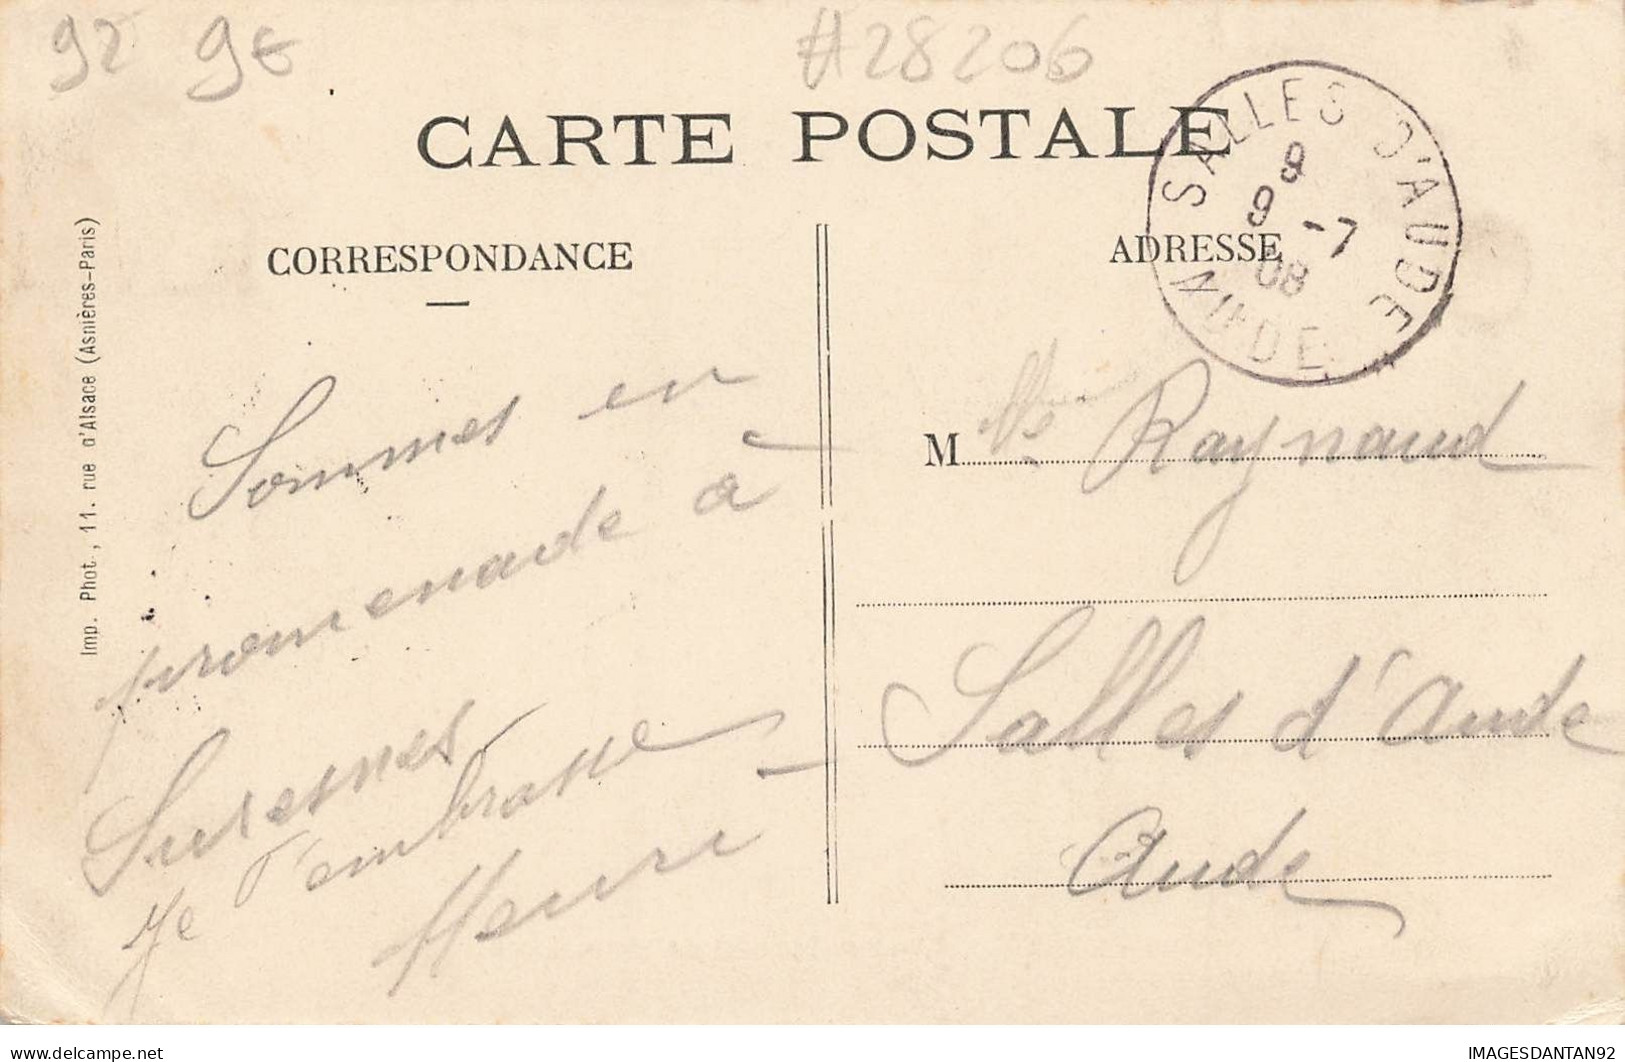 92 9€
#28206
CARTE POSTALE
SALLES D'AUDE
AUDE
9
9 -7
08
CORRESPONDANCE
ADRESSE
Imp. Phot., 11. rue d'Alsace (Asnières-Paris)
Sommes en
promenade à
Suresnes
Je t'embrasse
Henri
M Raynaud
Salles d'Aude
Aude
IMAGESDANTAN92
delcampe.net